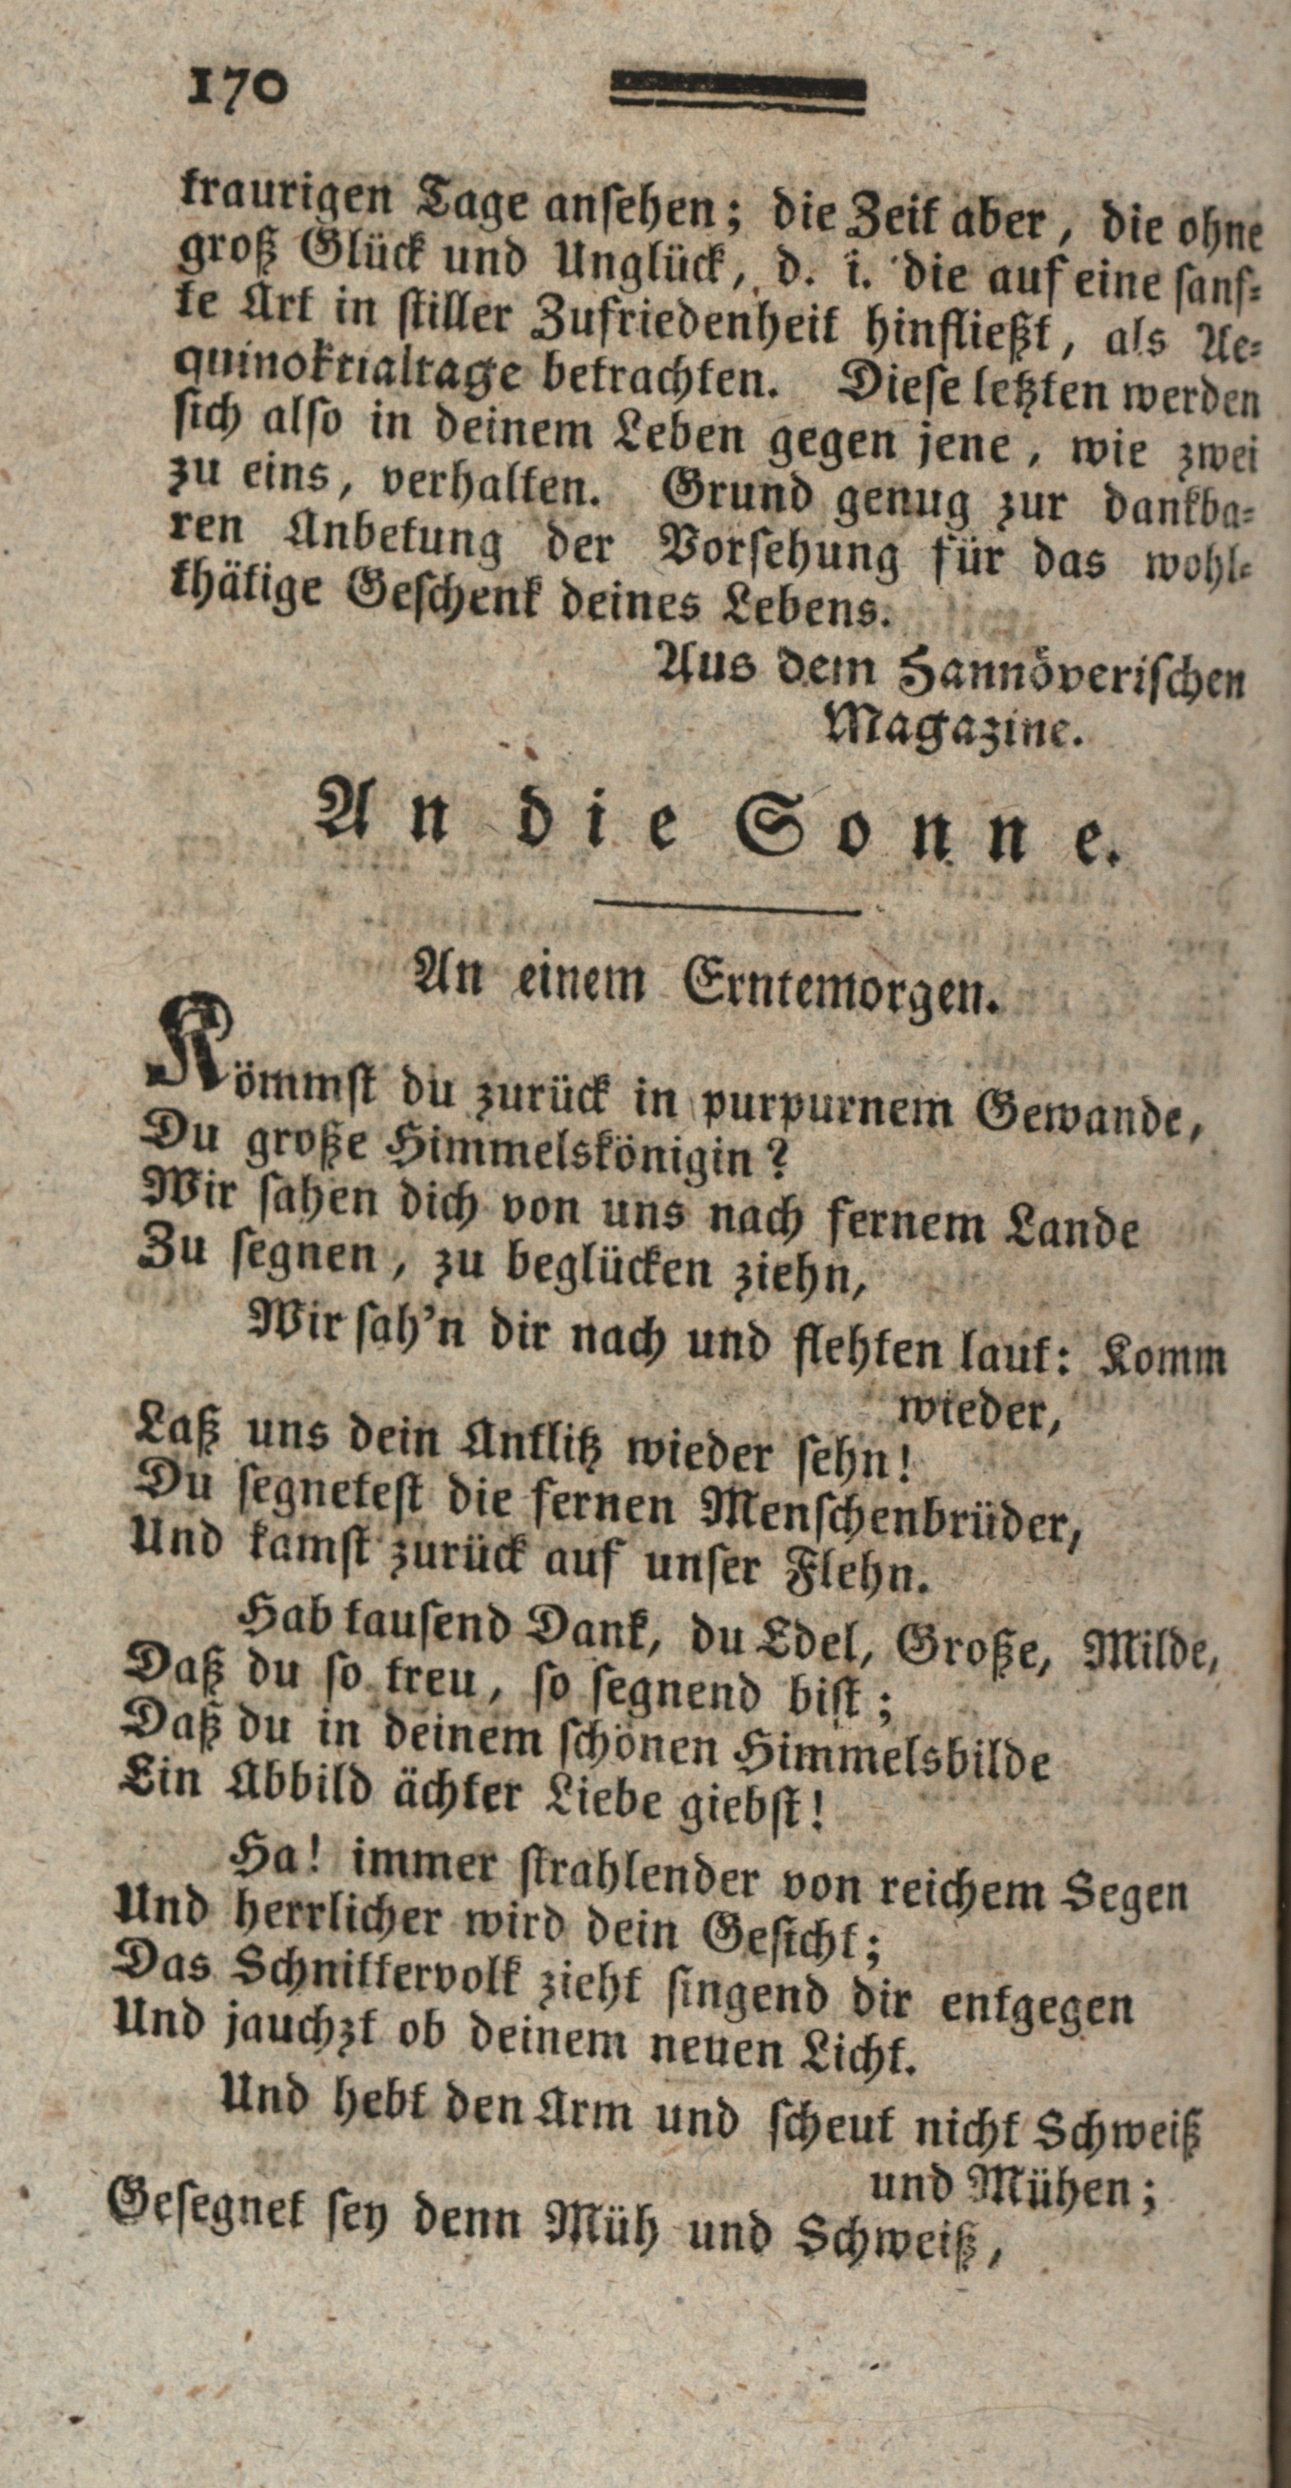 170
traurigen Tage ansehen; die Zeit aber, die ohne
groß Glück und Unglück, d. i. die auf eine sanf-
te Art in stiller Zufriedenheit hinfließt, als Ae-
quinoktialtage betrachten. Diese letzten werden
sich also in deinem Leben gegen jene, wie zwei
zu eins, verhalten. Grund genug zur dankba-
ren Anbetung der Vorsehung für das wohl-
thätige Geschenk deines Lebens.
Aus dem Hannöverischen
Magazine.
An die Sonne.
An einem Erntemorgen.
Kömmst du zurück in purpurnem Gewande,
Du große Himmelskönigin?
Wir sahen dich von uns nach fernem Lande
Zu segnen, zu beglücken ziehn,
Wir sah'n dir nach und flehten laut: Komm
wieder,
Laß uns dein Antlitz wieder sehn!
Du segnetest die fernen Menschenbrüder,
Und kamst zurück auf unser Flehn.
Hab tausend Dank, du Edel, Große, Milde,
Daß du so treu, so segnend bist;
Daß du in deinem schönen Himmelsbilde
Ein Abbild ächter Liebe giebst!
Ha! immer strahlender von reichem Segen
Und herrlicher wird dein Gesicht;
Das Schnittervolk zieht singend dir entgegen
Und jauchzt ob deinem neuen Licht.
Und hebt den Arm und scheut nicht Schweiß
und Mühen;
Gesegnet sey denn Müh und Schweiß,